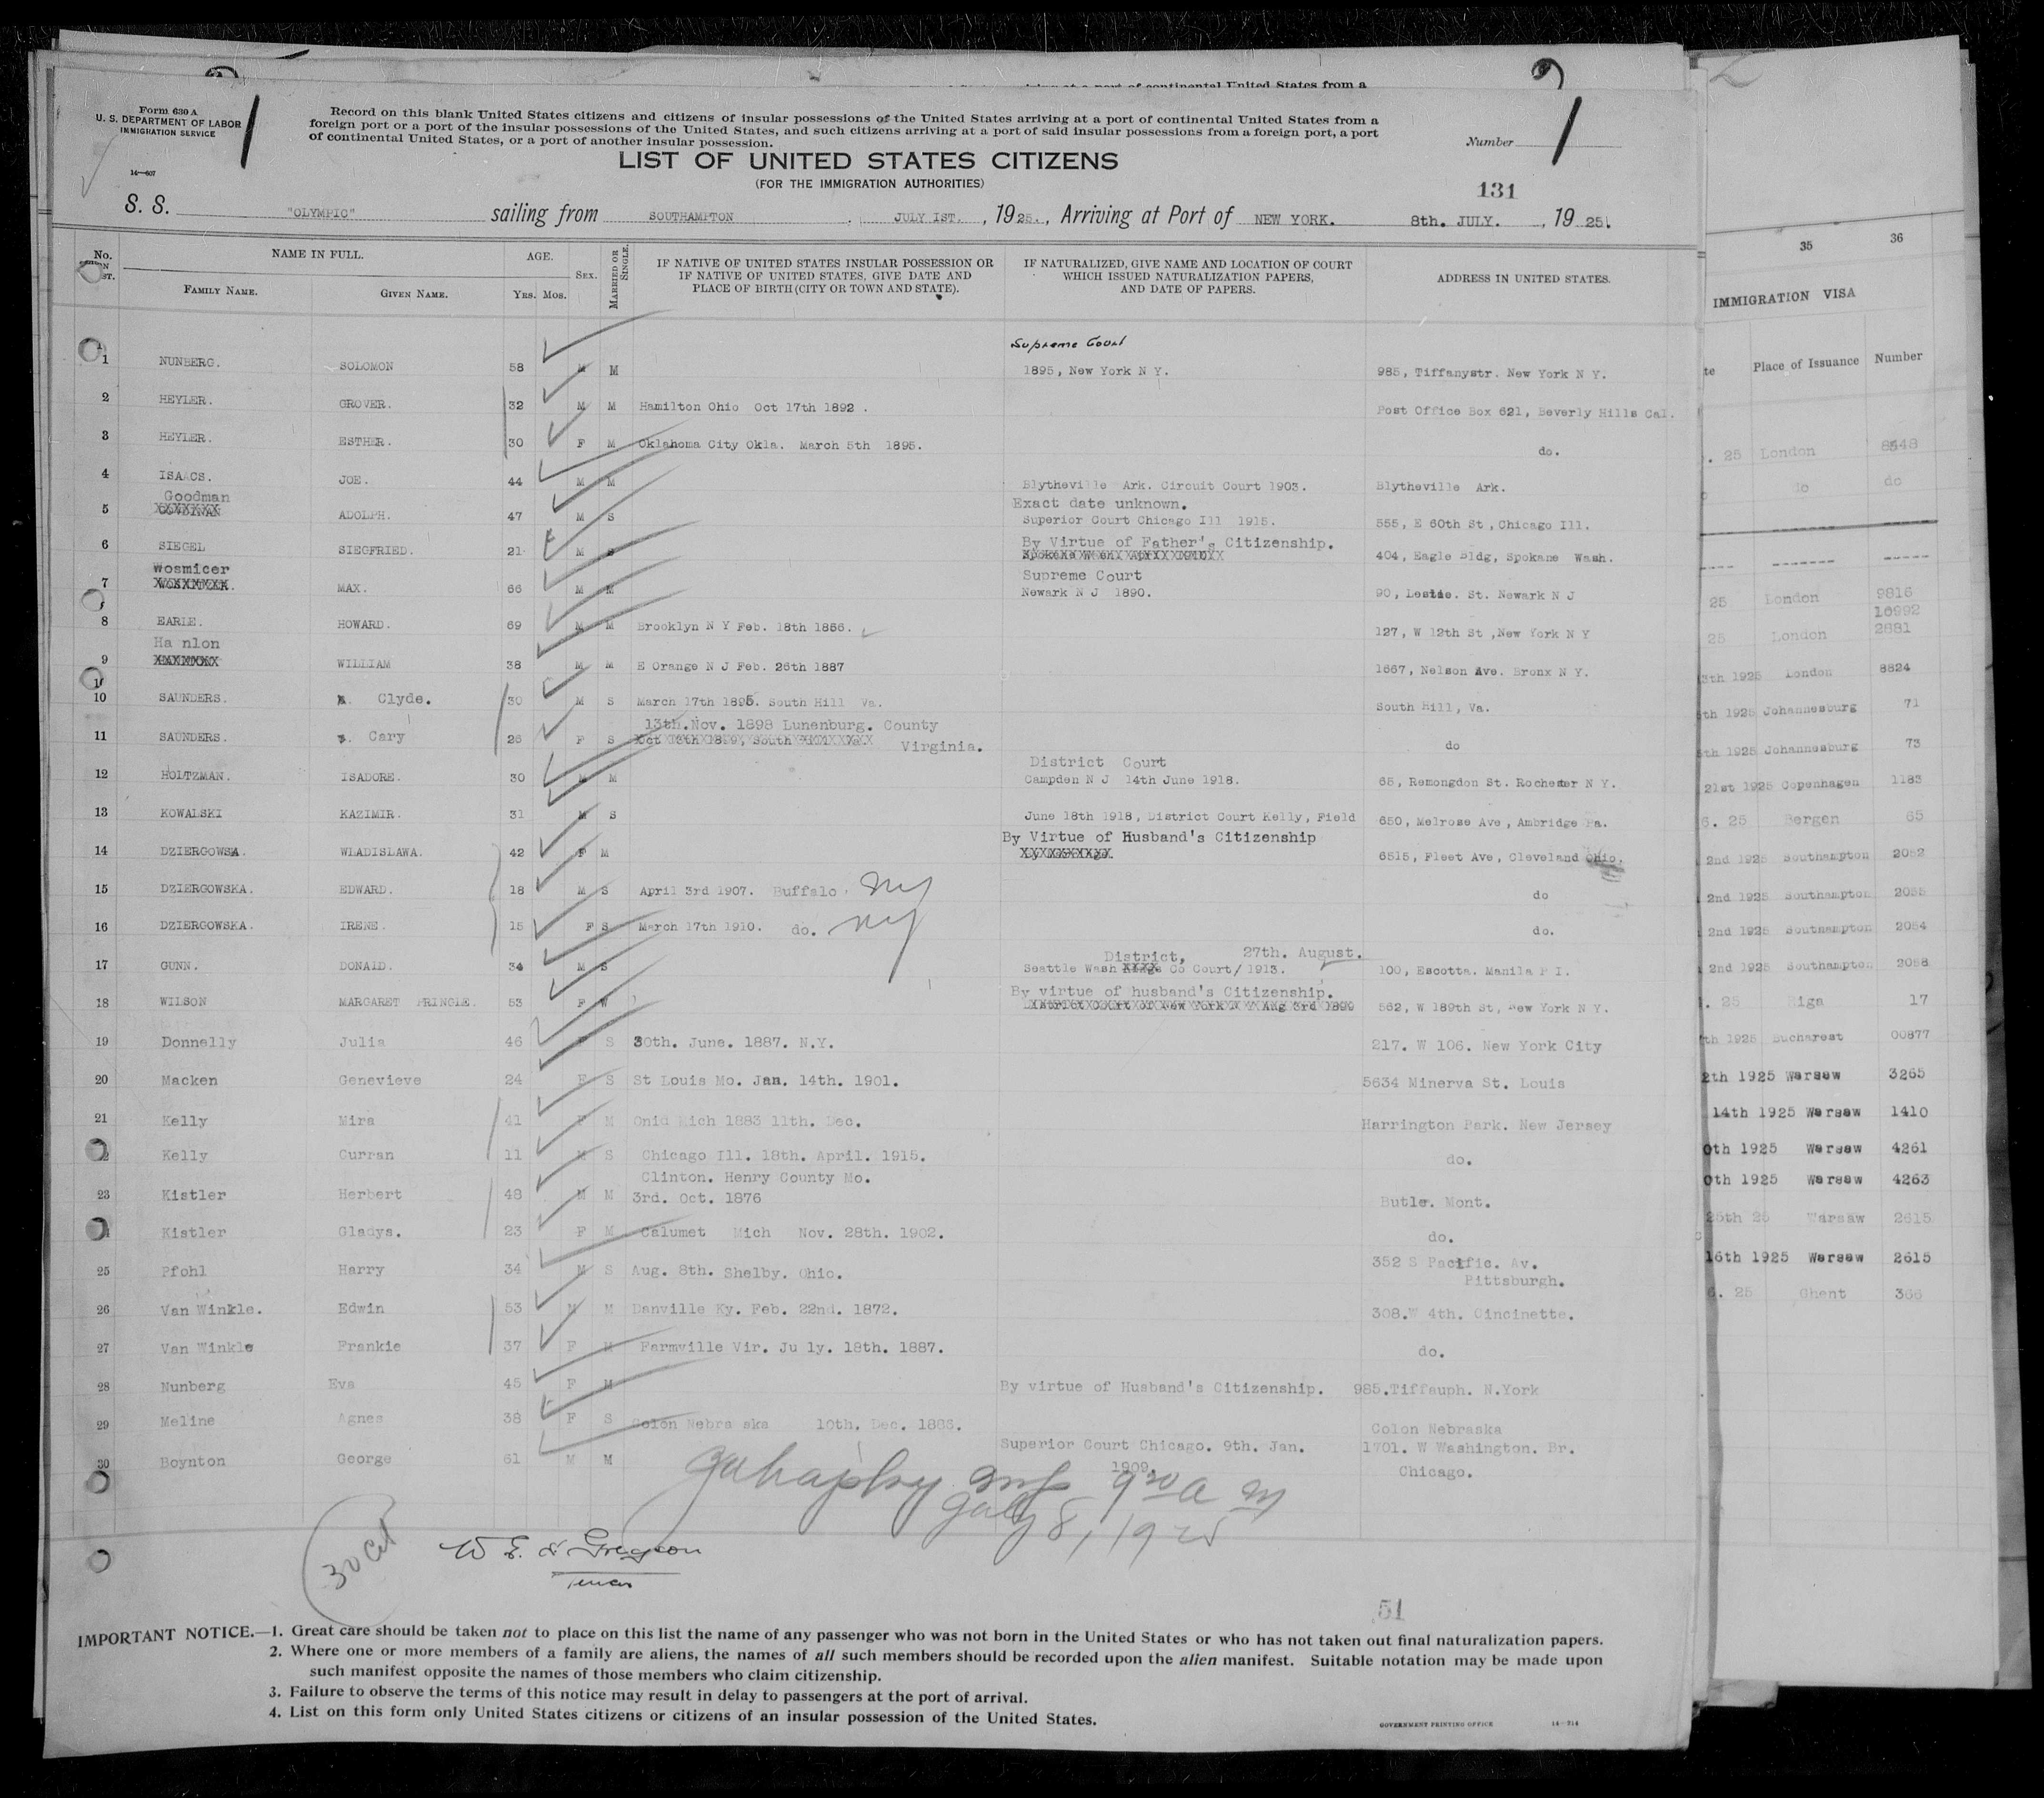 continental United States from a
Form 630 A
U. S. DEPARTMENT OF LABOR
IMMIGRATION SERVICE
14—607
Record on this blank United States citizens and citizens of insular possessions of the United States arriving at a port of continental United States from a
foreign port or a port of the insular possessions of the United States, and such citizens arriving at a port of said insular possessions from a foreign port, a port
of continental United States, or a port of another insular possession.
Number
LIST OF UNITED STATES CITIZENS
(FOR THE IMMIGRATION AUTHORITIES)
131
S. S. "OLYMPIC" sailing from SOUTHAMPTON. JULY IST. , 1925., Arriving at Port of NEW YORK. 8th. JULY. , 1925.
No.
NAME IN FULL.
FAMILY NAME. GIVEN NAME.
AGE.
YRS. MOS.
SEX.
MARRIED OR SINGLE.
IF NATIVE OF UNITED STATES INSULAR POSSESSION OR
IF NATIVE OF UNITED STATES, GIVE DATE AND
PLACE OF BIRTH (CITY OR TOWN AND STATE).
IF NATURALIZED, GIVE NAME AND LOCATION OF COURT
WHICH ISSUED NATURALIZATION PAPERS,
AND DATE OF PAPERS.
ADDRESS IN UNITED STATES.
Supreme Court
1 NUNBERG. SOLOMON 58 M M 1895, New York N Y. 985, Tiffanystr. New York N Y.
2 HEYLER. GROVER. 32 M M Hamilton Ohio Oct 17th 1892 . Post Office Box 621, Beverly Hills Cal.
3 HEYLER. ESTHER. 30 F M Oklahoma City Okla. March 5th 1895. do.
4 ISAACS. JOE. 44 M M Blytheville Ark. Circuit Court 1903. Blytheville Ark.
Goodman Exact date unknown.
5 ADOLPH. 47 M S Superior Court Chicago Ill 1915. 555, E 60th St, Chicago Ill.
By Virtue of Father's Citizenship.
6 SIEGEL SIEGFRIED. 21 M S 404, Eagle Bldg, Spokane Wash.
Wosmicer Supreme Court
7 MAX. 66 M M Newark N J 1890. 90, Leslie. St. Newark N J
8 EARLE. HOWARD. 69 M M Brooklyn N Y Feb. 18th 1856. 127, W 12th St ,New York N Y
Ha nlon
9 WILLIAM 38 M M E Orange N J Feb. 26th 1887 1667, Nelson Ave. Bronx N Y.
10 SAUNDERS. Clyde. 30 M S March 17th 1895. South Hill Va. South Hill, Va.
13th.Nov. 1898 Lunenburg. County
11 SAUNDERS. Cary 26 F S Virginia. do
District Court
12 HOLTZMAN. ISADORE. 30 M M Campden N J 14th June 1918. 65, Remongdon St. Rochester N Y.
13 KOWALSKI KAZIMIR. 31 M S June 18th 1918, District Court Kelly, Field 650, Melrose Ave, Ambridge Pa.
By Virtue of Husband's Citizenship
14 DZIERGOWSKA. WLADISLAWA. 42 F M 6515, Fleet Ave, Cleveland Ohio.
15 DZIERGOWSKA. EDWARD. 18 M S April 3rd 1907. Buffalo. NY do
16 DZIERGOWSKA. IRENE. 15 F S March 17th 1910. do. NY do.
District, 27th. August.
17 GUNN. DONALD. 34 M S Seattle Wash Co Court/ 1913. 100, Escotta. Manila P I.
By virtue of husband's Citizenship.
18 WILSON MARGARET PRINGLE. 53 F W District Court of New York N Y Aug 3rd 1890 562, W 189th St, New York N Y.
19 Donnelly Julia 46 F S 30th. June. 1887. N.Y. 217. W 106. New York City
20 Macken Genevieve 24 F S St Louis Mo. Jan. 14th. 1901. 5634 Minerva St. Louis
21 Kelly Mira 41 F M Onid Mich 1883 11th. Dec. Harrington Park. New Jersey
Kelly Curran 11 M S Chicago Ill. 18th. April. 1915. do.
Clinton. Henry County Mo.
23 Kistler Herbert 48 M M 3rd. Oct. 1876 Butle. Mont.
Kistler Gladys. 23 F M Calumet Mich Nov. 28th. 1902. do.
25 Pfohl Harry 34 M S Aug. 8th. Shelby. Ohio. 352 S Pacific. Av.
Pittsburgh.
26 Van Winkle. Edwin 53 M M Danville Ky. Feb. 22nd. 1872. 308.W 4th. Cincinette.
27 Van Winkle Frankie 37 F M Farmville Vir. Ju ly. 18th. 1887. do.
28 Nunberg Eva 45 F M By virtue of Husband's Citizenship. 985.Tiffauph. N.York
29 Meline Agnes 38 F S Colon Nebra ska 10th. Dec. 1886. Colon Nebraska
30 Boynton George 61 M M Superior Court Chicago. 9th. Jan. 1909. 1701. W Washington. Br.
Chicago.
July 8, 1925
30 cit
51
IMPORTANT NOTICE.—1. Great care should be taken not to place on this list the name of any passenger who was not born in the United States or who has not taken out final naturalization papers.
2. Where one or more members of a family are aliens, the names of all such members should be recorded upon the alien manifest. Suitable notation may be made upon
such manifest opposite the names of those members who claim citizenship.
3. Failure to observe the terms of this notice may result in delay to passengers at the port of arrival.
4. List on this form only United States citizens or citizens of an insular possession of the United States.
GOVERNMENT PRINTING OFFICE 14—214
35 36
IMMIGRATION VISA
Place of Issuance Number
. 25 London 8548
do do
25 London 9816
10992
25 London 2881
1925 London 8824
1925 Johannesburg 71
1925 Johannesburg 73
21st 1925 Copenhagen 1183
6. 25 Bergen 65
2nd 1925 Southampton 2052
2nd 1925 Southampton 2055
2nd 1925 Southampton 2054
2nd 1925 Southampton 2058
. 25 Riga 17
th 1925 Bucharest 00877
2th 1925 Warsaw 3265
14th 1925 Warsaw 1410
0th 1925 Warsaw 4261
0th 1925 Warsaw 4263
25 Warsaw 2615
16th 1925 Warsaw 2615
6. 25 Ghent 366